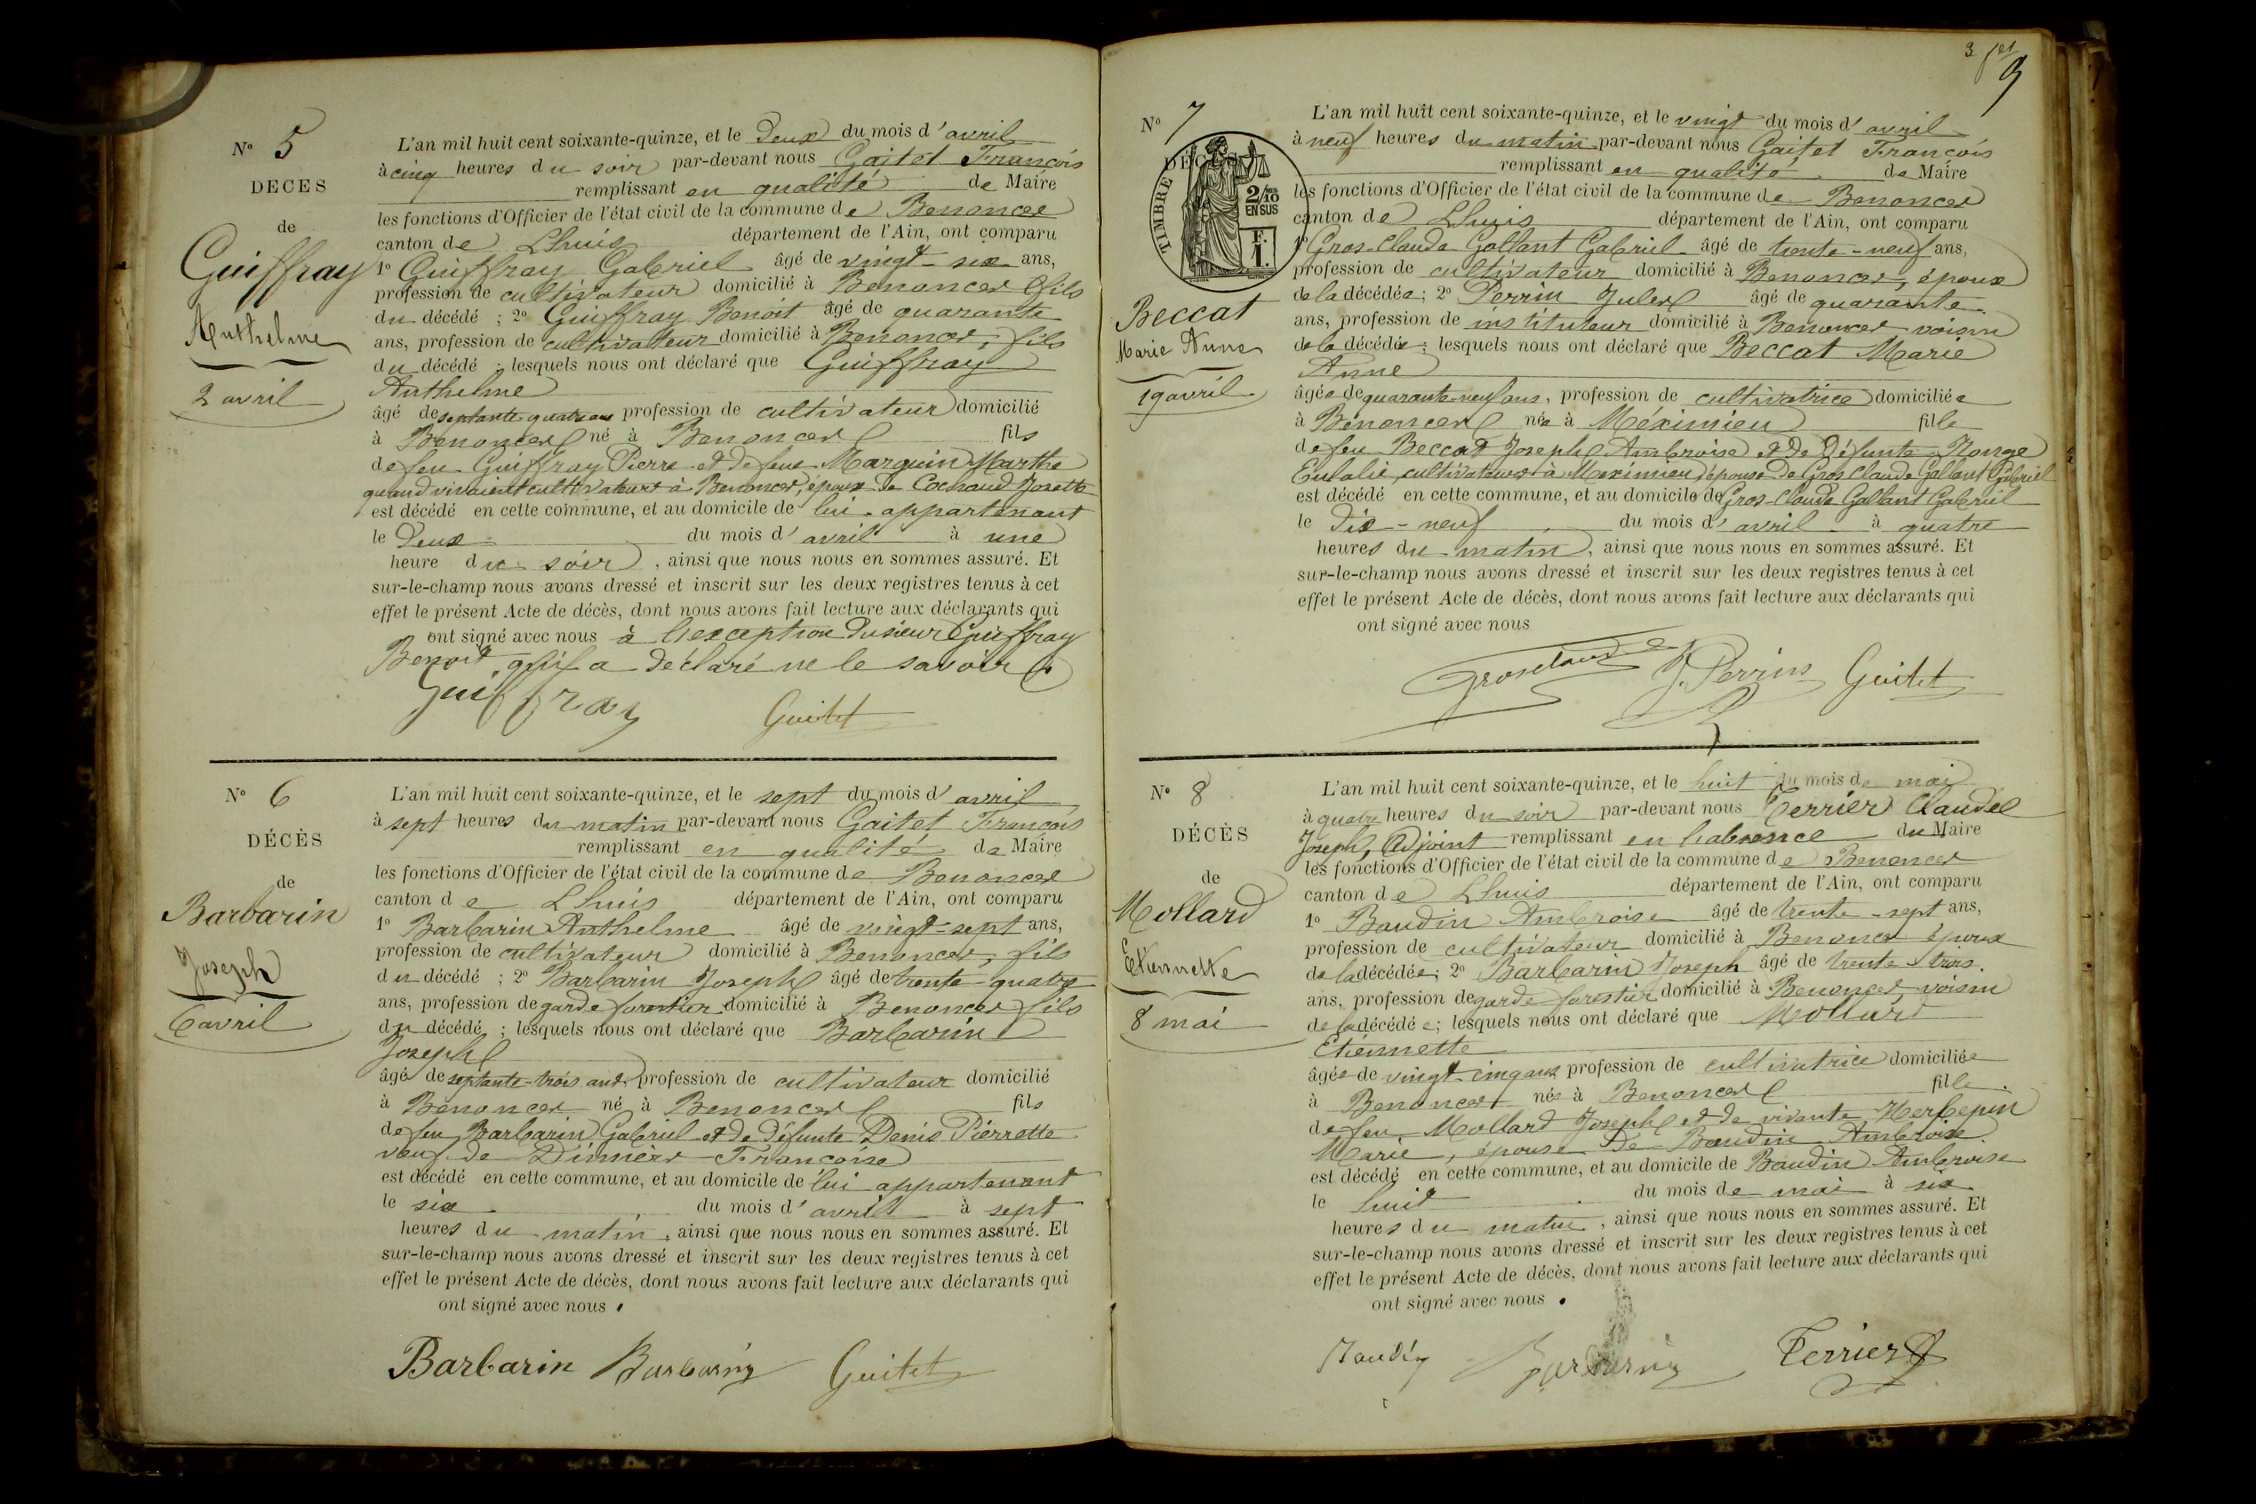 N° 5
DECES
de
Guiffray
Anthelme
2 avril
L'an mil huit cent soixante-quinze, et le deux du mois d'avril
à cinq heures du soir par-devant nous Gaitet François
remplissant en qualité de Maire
les fonctions d'Officier de l'état civil de la commune de Benonces
canton de Lhuis département de l'Ain, ont comparu
1° Guiffray Gabriel âgé de vingt-six ans,
profession de cultivateur domicilié à Benonces fils
du décédé ; 2° Guiffray Benoit âgé de quarante
ans, profession de cultivateur domicilié à Benonces, fils
du décédé ; lesquels nous ont déclaré que Guiffray
Anthelme
âgé de septante-quatre ans profession de cultivateur domicilié
à Benonces né à Benonces fils
de feu Guiffray Pierre et de feue Marguin Marthe
quand vivaient cultivateurs à Benonces, époux de Cochaud Josette
est décédé en cette commune, et au domicile de lui appartenant
le deux du mois d'avril à une
heure du soir, ainsi que nous nous en sommes assuré. Et
sur-le-champ nous avons dressé et inscrit sur les deux registres tenus à cet
effet le présent Acte de décès, dont nous avons fait lecture aux déclarants qui
ont signé avec nous à l'exception du sieur Guiffray
Benoit qui a déclaré ne le savoir.
Guiffray Gaitet
N° 6
DÉCÈS
de
Barbarin
Joseph
6 avril
L'an mil huit cent soixante-quinze, et le sept du mois d'avril
à sept heures du matin par-devant nous Gaitet François
remplissant en qualité de Maire
les fonctions d'Officier de l'état civil de la commune de Benonces
canton de Lhuis département de l'Ain, ont comparu
1° Barbarin Anthelme âgé de vingt-sept ans,
profession de cultivateur domicilié à Benonces, fils
du décédé ; 2° Barbarin Joseph âgé de trente-quatre
ans, profession de garde forestier domicilié à Benonces fils
du décédé ; lesquels nous ont déclaré que Barbarin
Joseph
âgé de septante-trois ans, profession de cultivateur domicilié
à Benonces né à Benonces fils
de feu Barbarin Gabriel et de défunte Denis Pierrette
veuf de Dimier Françoise
est décédé en cette commune, et au domicile de lui appartenant
le six du mois d'avril à sept
heures du matin, ainsi que nous nous en sommes assuré. Et
sur-le-champ nous avons dressé et inscrit sur les deux registres tenus à cet
effet le présent Acte de décès, dont nous avons fait lecture aux déclarants qui
ont signé avec nous.
Barbarin Barbarin Gaitet
3 fet
9
N° 7
DÉCÈS
TIMBRE
2/10
EN SUS
F.
1.
Beccat
Marie Anne
19 avril
L'an mil huit cent soixante-quinze, et le vingt du mois d'avril
à neuf heures du matin par-devant nous Gaitet François
remplissant en qualité de Maire
les fonctions d'Officier de l'état civil de la commune de Benonces
canton de Lhuis département de l'Ain, ont comparu
1° Gros-Claude Gallant Gabriel âgé de trente-neuf ans,
profession de cultivateur domicilié à Benonces, époux
de la décédée ; 2° Perrin Jules âgé de quarante
ans, profession de instituteur domicilié à Benonces voisin
de la décédée ; lesquels nous ont déclaré que Beccat Marie
Anne
âgée de quarante-neuf ans, profession de cultivatrice domiciliée
à Bénonces née à Méximieu fille
de feu Beccat Joseph Ambroise et de défunte Ronge
Eulalie, cultivateurs à Meximieu, épouse de Gros Claude Gallant Gabriel
est décédé en cette commune, et au domicile de Gros-Claude Gallant Gabriel
le dix-neuf du mois d'avril à quatre
heures du matin, ainsi que nous nous en sommes assuré. Et
sur-le-champ nous avons dressé et inscrit sur les deux registres tenus à cet
effet le présent Acte de décès, dont nous avons fait lecture aux déclarants qui
ont signé avec nous
Grosclaude J. Perrin Gaitet
N° 8
DÉCÈS
de
Mollard
Etiennette
8 mai
L'an mil huit cent soixante-quinze, et le huit du mois de mai
à quatre heures du soir par-devant nous Terrier Claude
Joseph, Adjoint remplissant en l'absence du Maire
les fonctions d'Officier de l'état civil de la commune de Benonces
canton de Lhuis département de l'Ain, ont comparu
1° Baudin Ambroise âgé de trente-sept ans,
profession de cultivateur domicilié à Benonces époux
de la décédée ; 2° Barbarin Joseph âgé de trente trois
ans, profession de garde forestier domicilié à Benonces, voisin
de la décédée ; lesquels nous ont déclaré que Mollard
Etiennette
âgée de vingt-cinq ans profession de cultivatrice domiciliée
à Benonces née à Benonces fille
de feu Mollard Joseph et de vivante Herbepin
Marie, épouse de Baudin Ambroise
est décédé en cette commune, et au domicile de Baudin Ambroise
le huit du mois de mai à six
heures du matin, ainsi que nous nous en sommes assuré. Et
sur-le-champ nous avons dressé et inscrit sur les deux registres tenus à cet
effet le présent Acte de décès, dont nous avons fait lecture aux déclarants qui
ont signé avec nous.
Baudin Barbarin Terrier